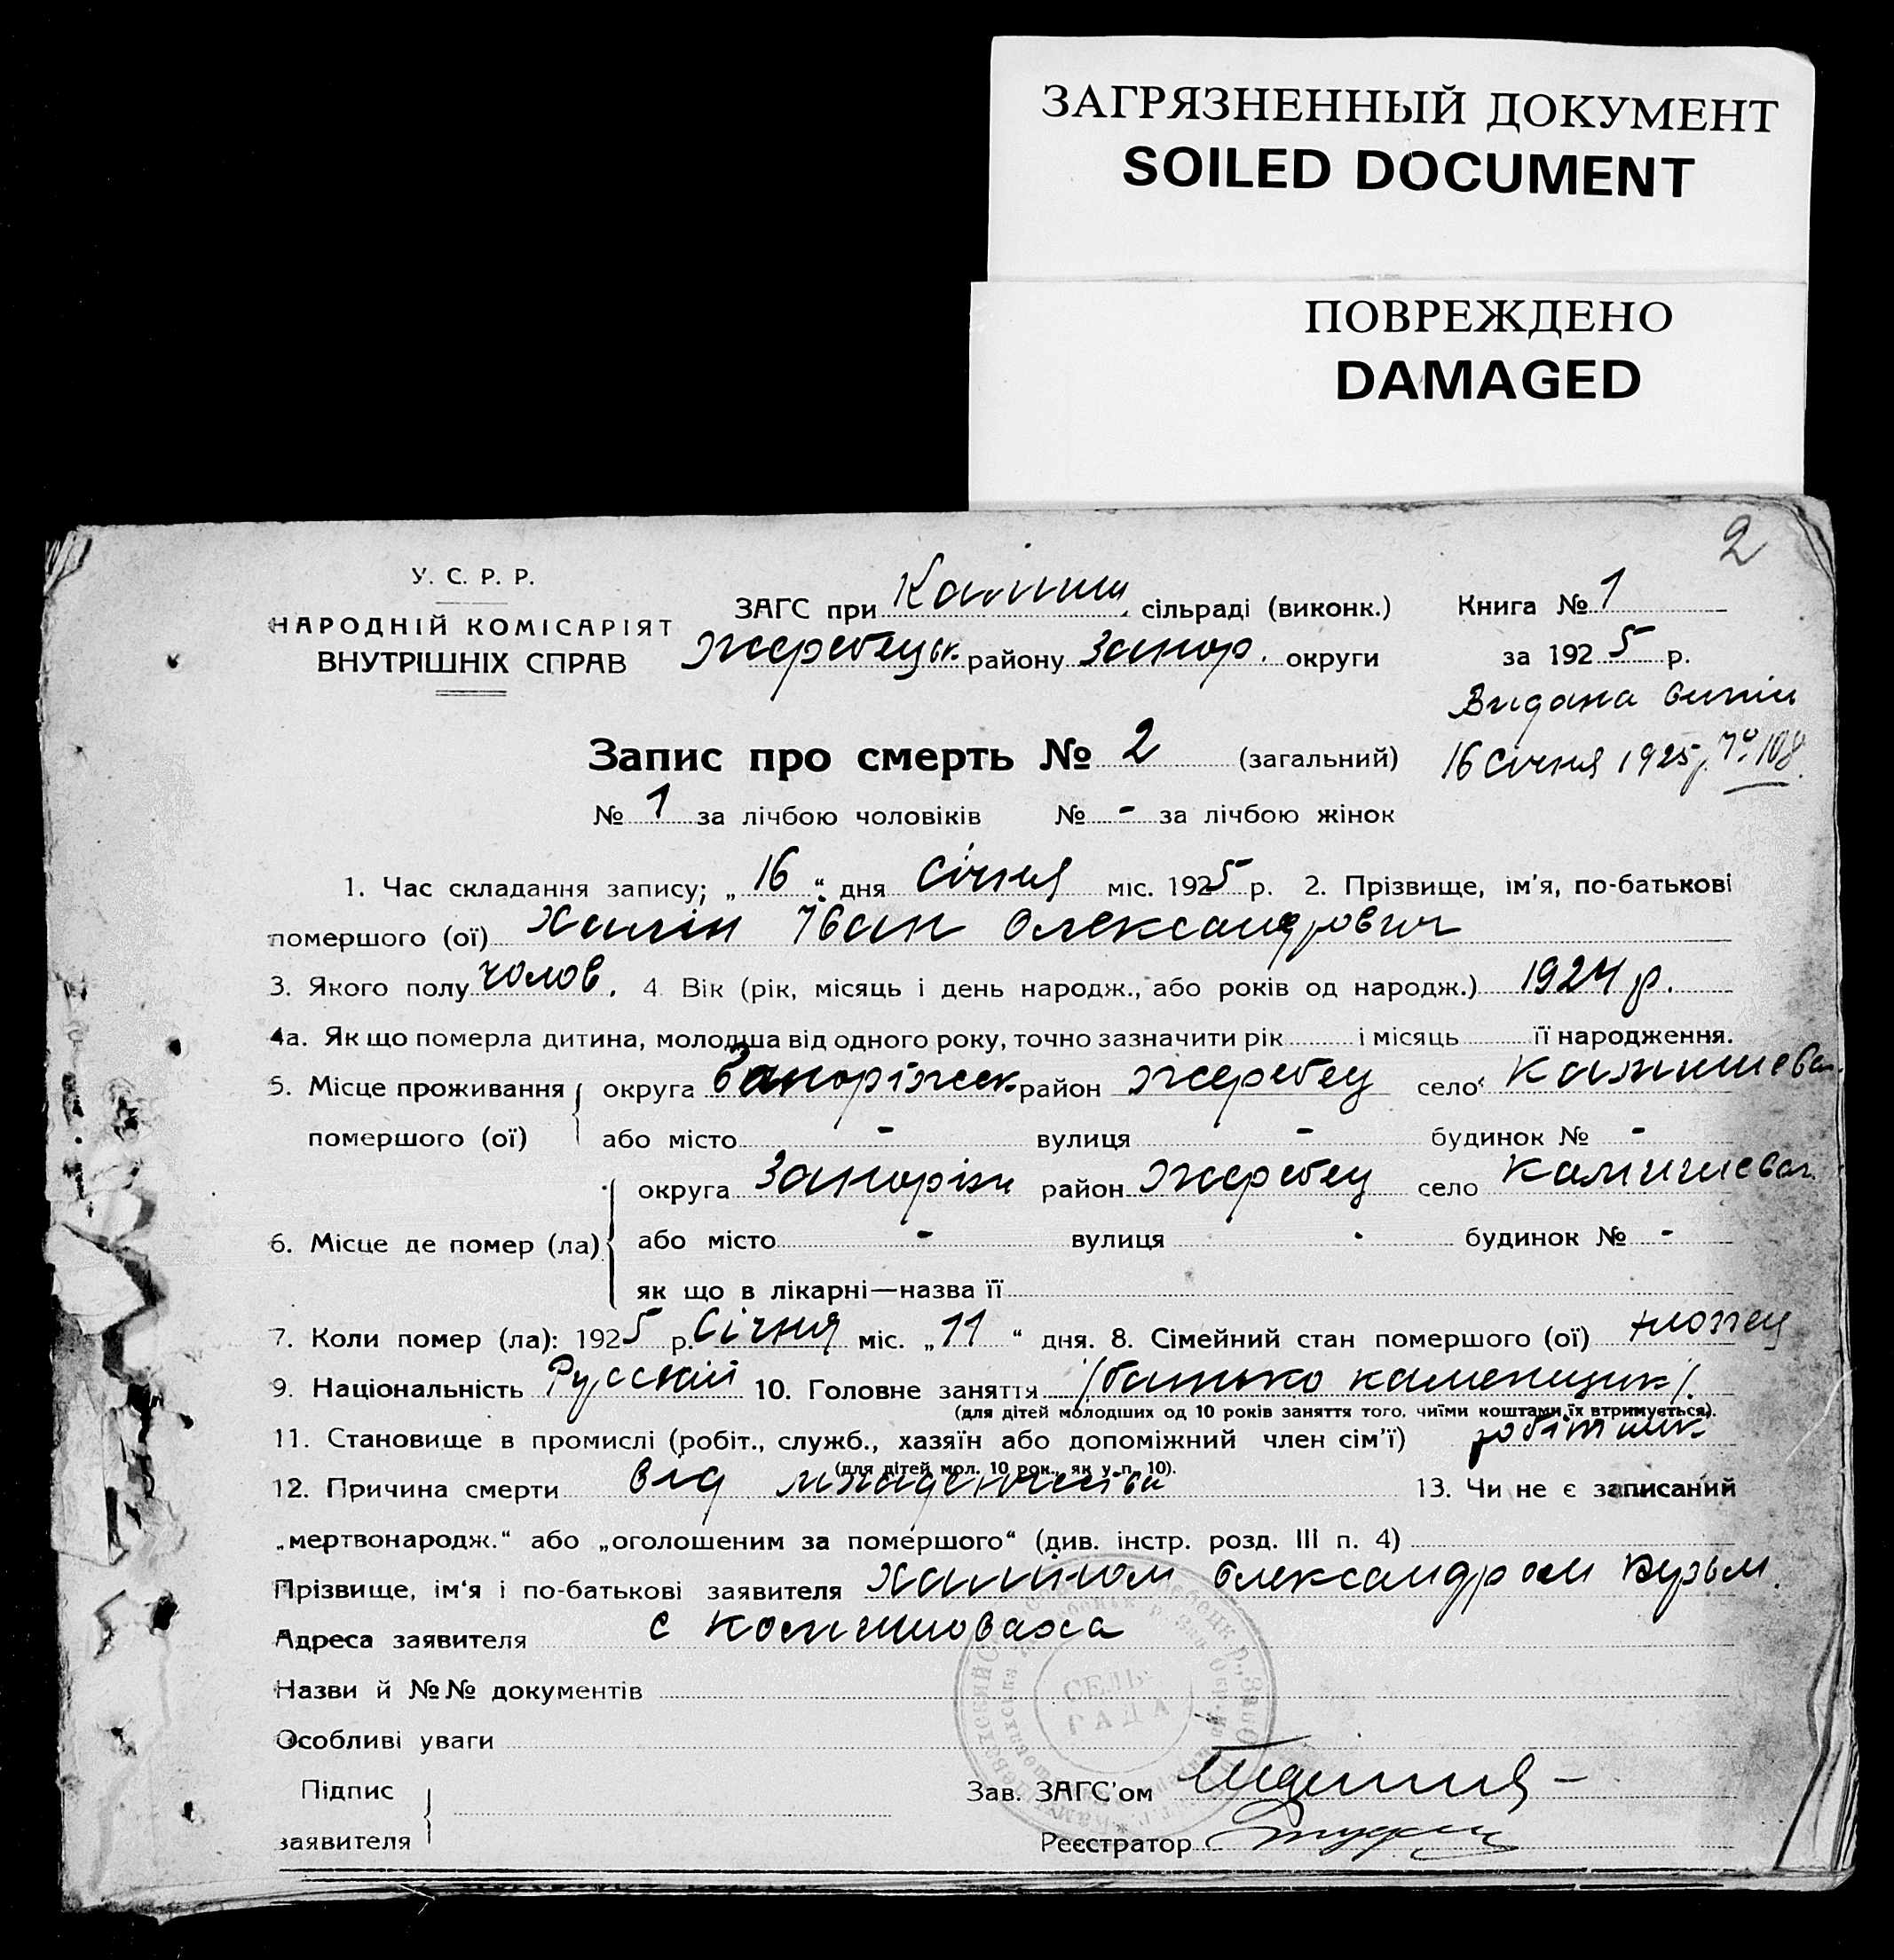 ЗАГРЯЗНЕННЫЙ ДОКУМЕНТ
SOILED DOCUMENT
ПОВРЕЖДЕНО
DAMAGED
2
У. С. Р. Р.
НАРОДНІЙ КОМІСАРІЯТ
ВНУТРІШНІХ СПРАВ
ЗАГС при Камиш сільраді (виконк.)
Жеребецьк. району Запор. округи
Книга № 1
за 1925 р.
Видана випис
16 Січня 1925 р.
Запис про смерть № 2 (загальний)
№ 1 за лічбою чоловіків № - за лічбою жінок
1. Час складання запису; „16“ дня Січня міс. 1925 р. 2. Прізвище, ім'я, по-батькові
помершого (ої) Халін Іван Олександрович
3. Якого полу чолов. 4. Вік (рік, місяць і день народж., або років од народж.) 1924 р.
4а. Як що померла дитина, молодша від одного року, точно зазначити рік і місяць її народження.
5. Місце проживання округа Запоріжськ район Жеребец село Камишеват.
помершого (ої) або місто - вулиця - будинок № -
округа Запоріж район Жеребец село Камишеват.
6. Місце де помер (ла) або місто - вулиця - будинок № -
як що в лікарні—назва її
7. Коли помер (ла): 1925 р. Січня міс. „11“ дня. 8. Сімейний стан помершого (ої)
9. Національність Русский 10. Головне заняття /батько каменщик/.
(для дітей молодших од 10 років заняття того, чиїми коштами їх втримується).
11. Становище в промислі (робіт., служб., хазяїн або допоміжний член сім'ї) робітник
(для дітей мол. 10 рок., як у п. 10).
12. Причина смерти від младенчества 13. Чи не є записаний
„мертвонародж.“ або „оголошеним за помершого“ (див. інстр. розд. III п. 4)
Прізвище, ім'я і по-батькові заявителя Халіном Олександром Кузьм.
Адреса заявителя с Комишоваха
Назви й №№ документів
Особливі уваги
СЕЛЬ-
РАДА
Підпис
заявителя
Зав. ЗАГС'ом
Реєстратор